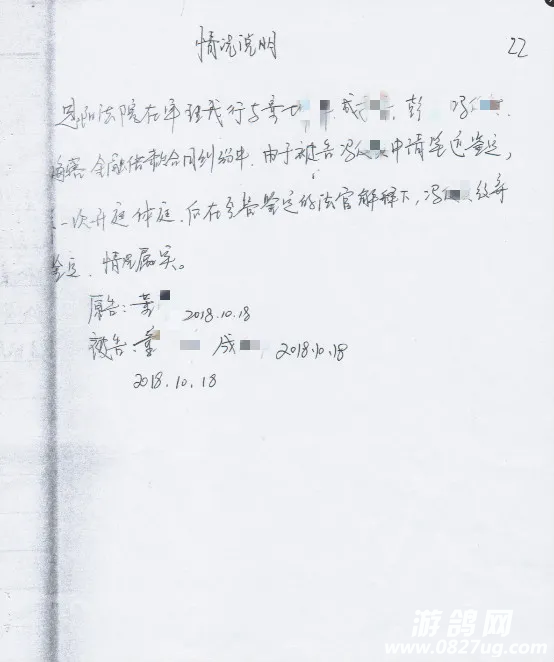 情况说明
22
恩阳法院在审理我行与 成 彭 冯
金融借款合同纠纷中，由于被告冯 申请笔迹鉴定，
一次开庭休庭，后在 鉴定的法官解释下，冯
鉴定，情况属实。
原告：
2018.10.18
被告： 成 2018.10.18
2018.10.18
游鸽网
www.0827ug.com